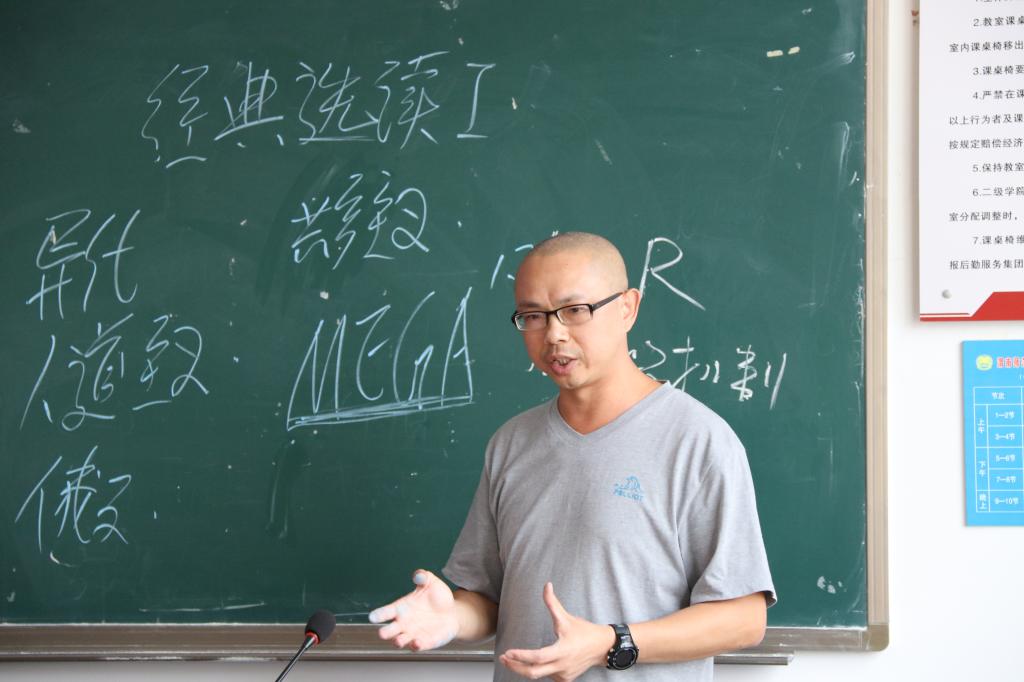 经典选读 I
异化
人道主义.
俄文.
共产主义.
MEGA
R
批判
2.教室课桌
室内课桌椅移出
3.课桌椅要
4.严禁在课
以上行为者及课
按规定赔偿经济
5.保持教室
6.二级学院
室分配调整时,
7.课桌椅维
报后勤服务集团
节次
上午
1—2节
3—4节
下午
5—6节
7—8节
晚上
9—10节